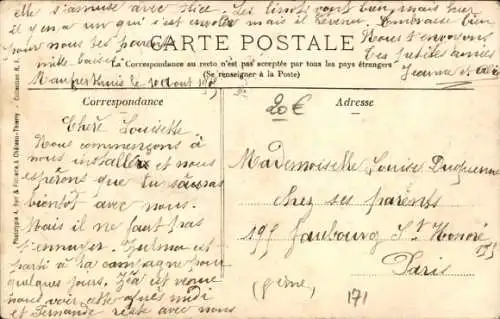 elle s'amuse avec Alice. Les vont bien, mais hier
il y en a un qui s'est envolé mais il revenu. Embrasse bien
pour nous tes parents Nous t'envoyons
mille baisers Tes petites amies
le 10 Août Jeanne et
CARTE POSTALE
La Correspondance au recto n'est pas acceptée par tous les pays étrangers
(Se renseigner à la Poste)
Correspondance
Chère Louisette
Nous commençons à
nous installer et nous
espérons que tu
bientôt avec nous.
Mais il ne faut pas
t'ennuyer. est
parti à la campagne pour
quelques jours. est venue
nous voir cette après midi
et Fernande reste avec nous
20€
Adresse
Mademoiselle Louise Duquenne
chez ses parents
195 Faubourg St Honoré
Paris
171